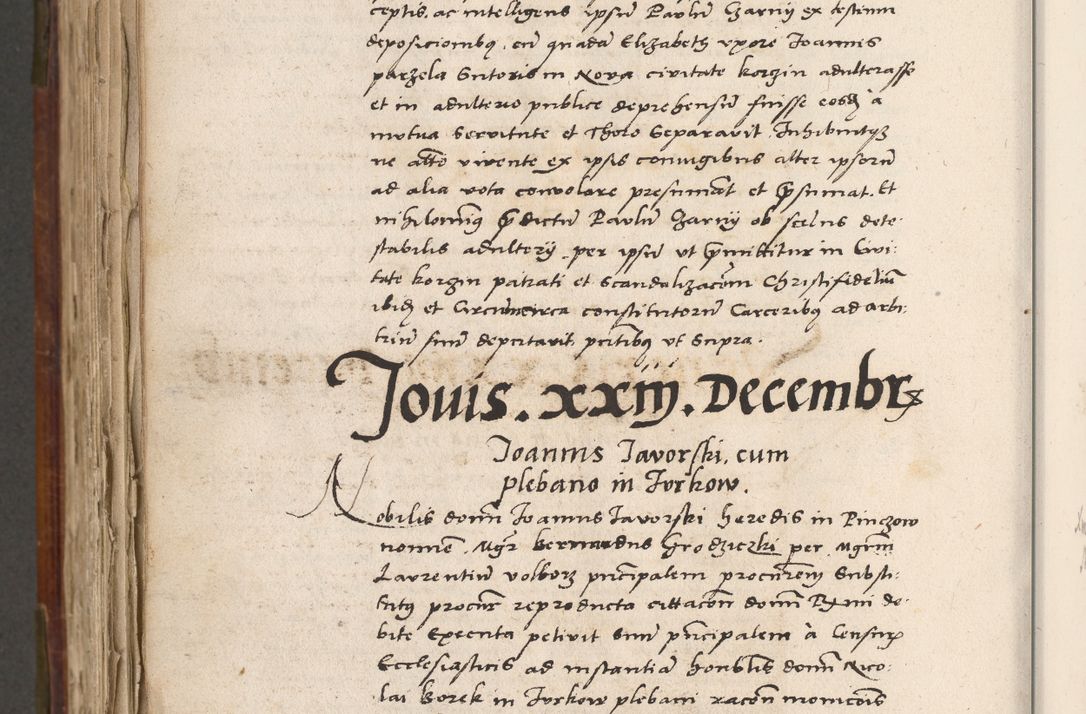 ceptis, ac intelligens ipsũ Paulũ Czarny ex testium
deposicionibꝫ, cũ quadã Elizabeth uxore Joannis
parzela Sutoris in Nova civitate korzin adulterasse
et in adulterio publice deprehensũ fuisse eosdꝫ à
mutua Servitute et Thoro Separavit. Inhibuitqꝫ
ne alto vivente ex ipsis coniugibus alter ipsorũ
ad alia vota convolare presumat et p̃sumat. Et
nihilominꝫ p̃dictũ Paulũ Czarny ob scelus dete
stabilis adulterÿ, per ipsũ ut p̃mittitur in Civi:
tate korzin patrati et Scandalizacõem Christifideliũ
ibidꝫ et Circumcirca constitutorũ Carceribꝫ ad arbi:
triũ suũ deputavit, pñtibꝫ ut Supra.
Jovis . xxiij . Decembrꝫ
Joannis Javorski, cum
plebano in Jurkow.
Nobilis domĩ Joannis Javorski heredis in Pinczow
nomine, Mgr̃ Bernardus Grodziczki per Mgrũm
Laurentiũ Volborz principalem procurem̃ Substi:
tutꝫ procur̃ reproducta cittacõn domĩ R<sup>x</sup>mi de:
bite Executa petivit Suũ principalem à Censurꝫ
Ecclesiasticis ad instantiã honblĩs domĩ Nico:
lai Borek in Jurkow plebani racõn monicõis